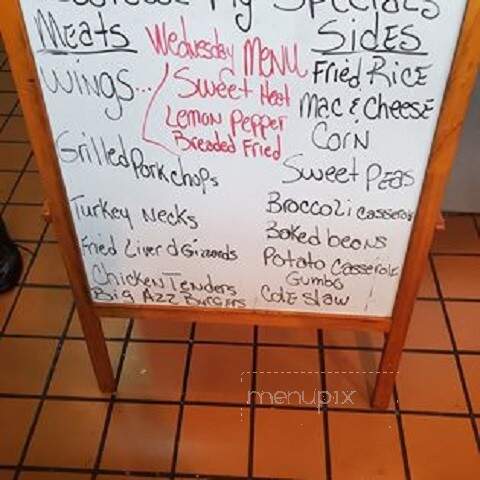 My Specials
Meats
Wednesday Menu
Sides
Wings...
Sweet Heat
Lemon Pepper
Breaded Fried
Grilled Pork chops
Turkey Necks
Fried Liver d Gizzards
Chicken Tenders
Big Azz Burgers
Fried Rice
Mac & Cheese
Corn
Sweet Peas
Broccoli casserole
Baked beans
Potato Casserole
Gumbo
Cole slaw
menupix